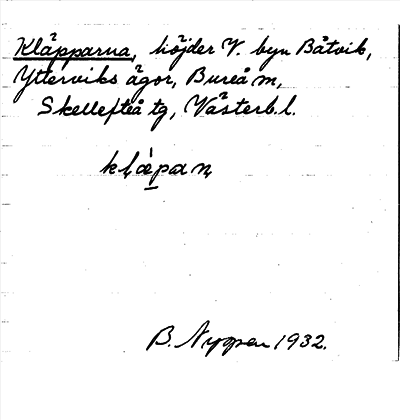 Kläpparna, höjder V. byn Båtvik,
Ytterviks ägor, Bureå sn,
Skellefteå tg, Västerb. l.
klæ̀pan
B. Nygren 1932.